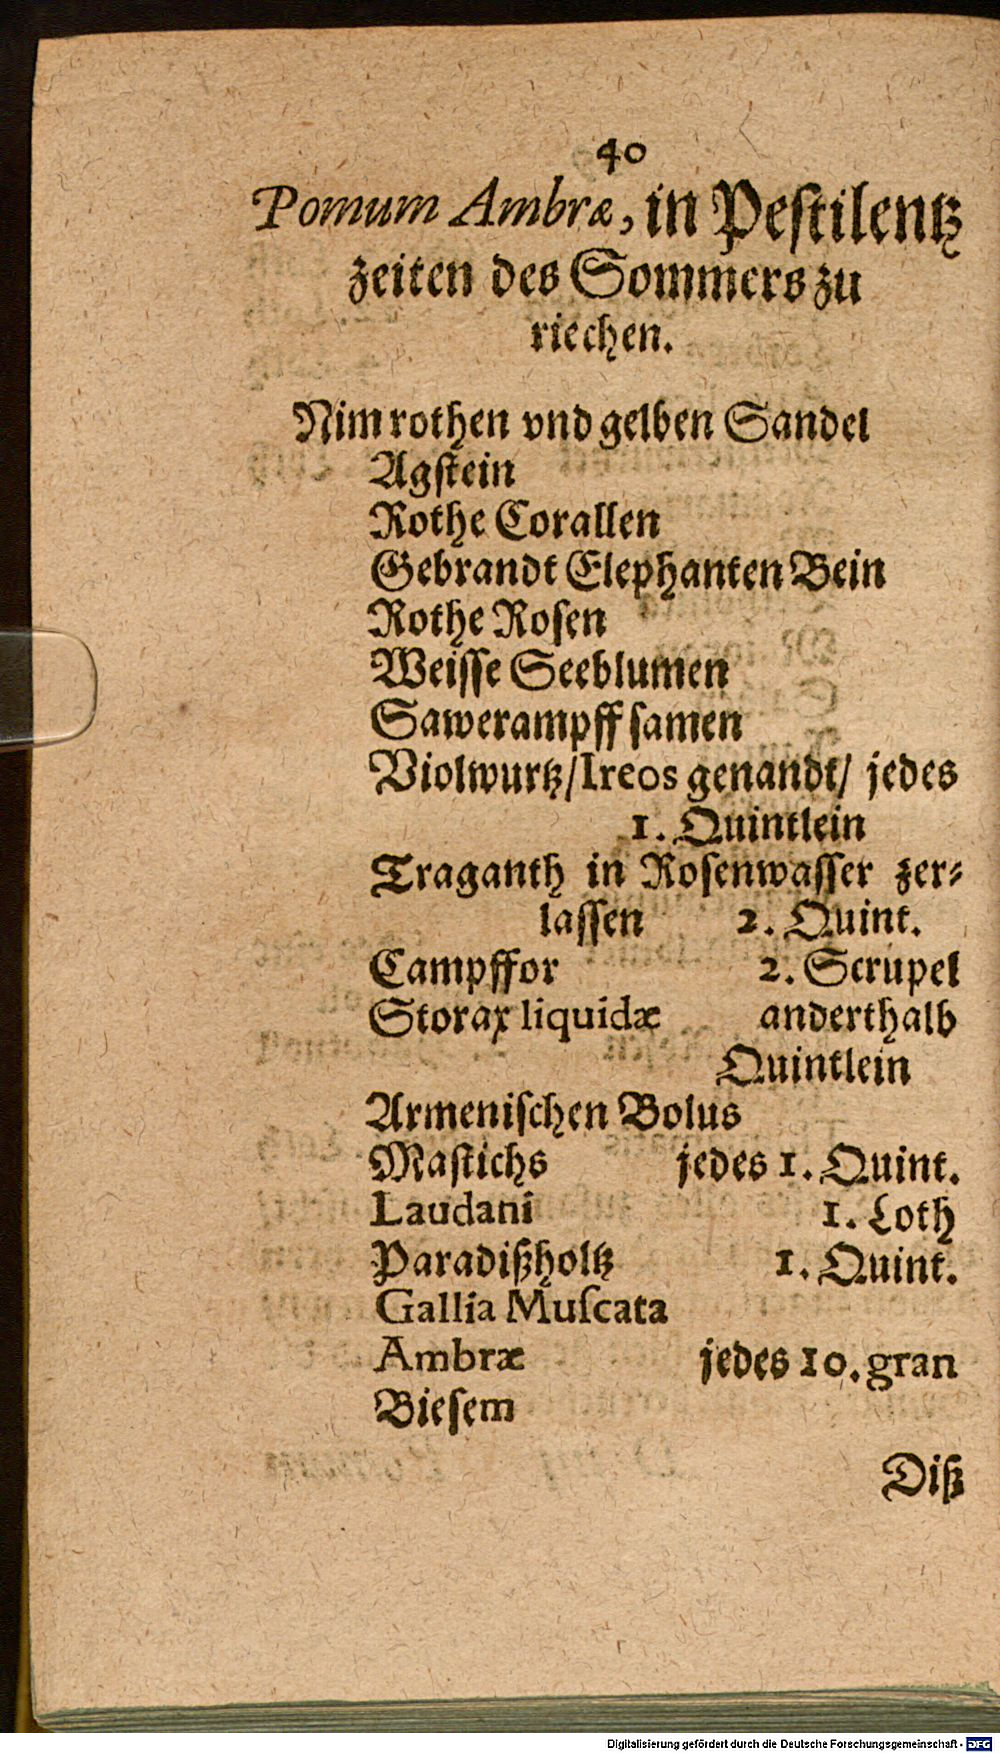 40
Pomum Ambræ, in Peſtilentz
zeiten des Sommers zu
riechen.
Nim rothen vnd gelben Sandel
Agſtein
Rothe Corallen
Gebrandt Elephanten Bein
Rothe Roſen
Weiſſe Seeblumen
Sawerampff ſamen
Violwurtz/ Ireos genandt/ jedes
1. Quintlein
Traganth in Roſenwaſſer zer⸗
laſſen 2. Quint.
Campffor 2. Scrupel
Storax liquidæ anderthalb
Quintlein
Armeniſchen Bolus
Maſtichs jedes 1. Quint.
Laudani 1. Loth
Paradißholtz 1. Quint.
Gallia Muſcata
Ambræ jedes 10. gran
Bieſem
Diß
Digitalisierung gefördert durch die Deutsche Forschungsgemeinschaft - DFG